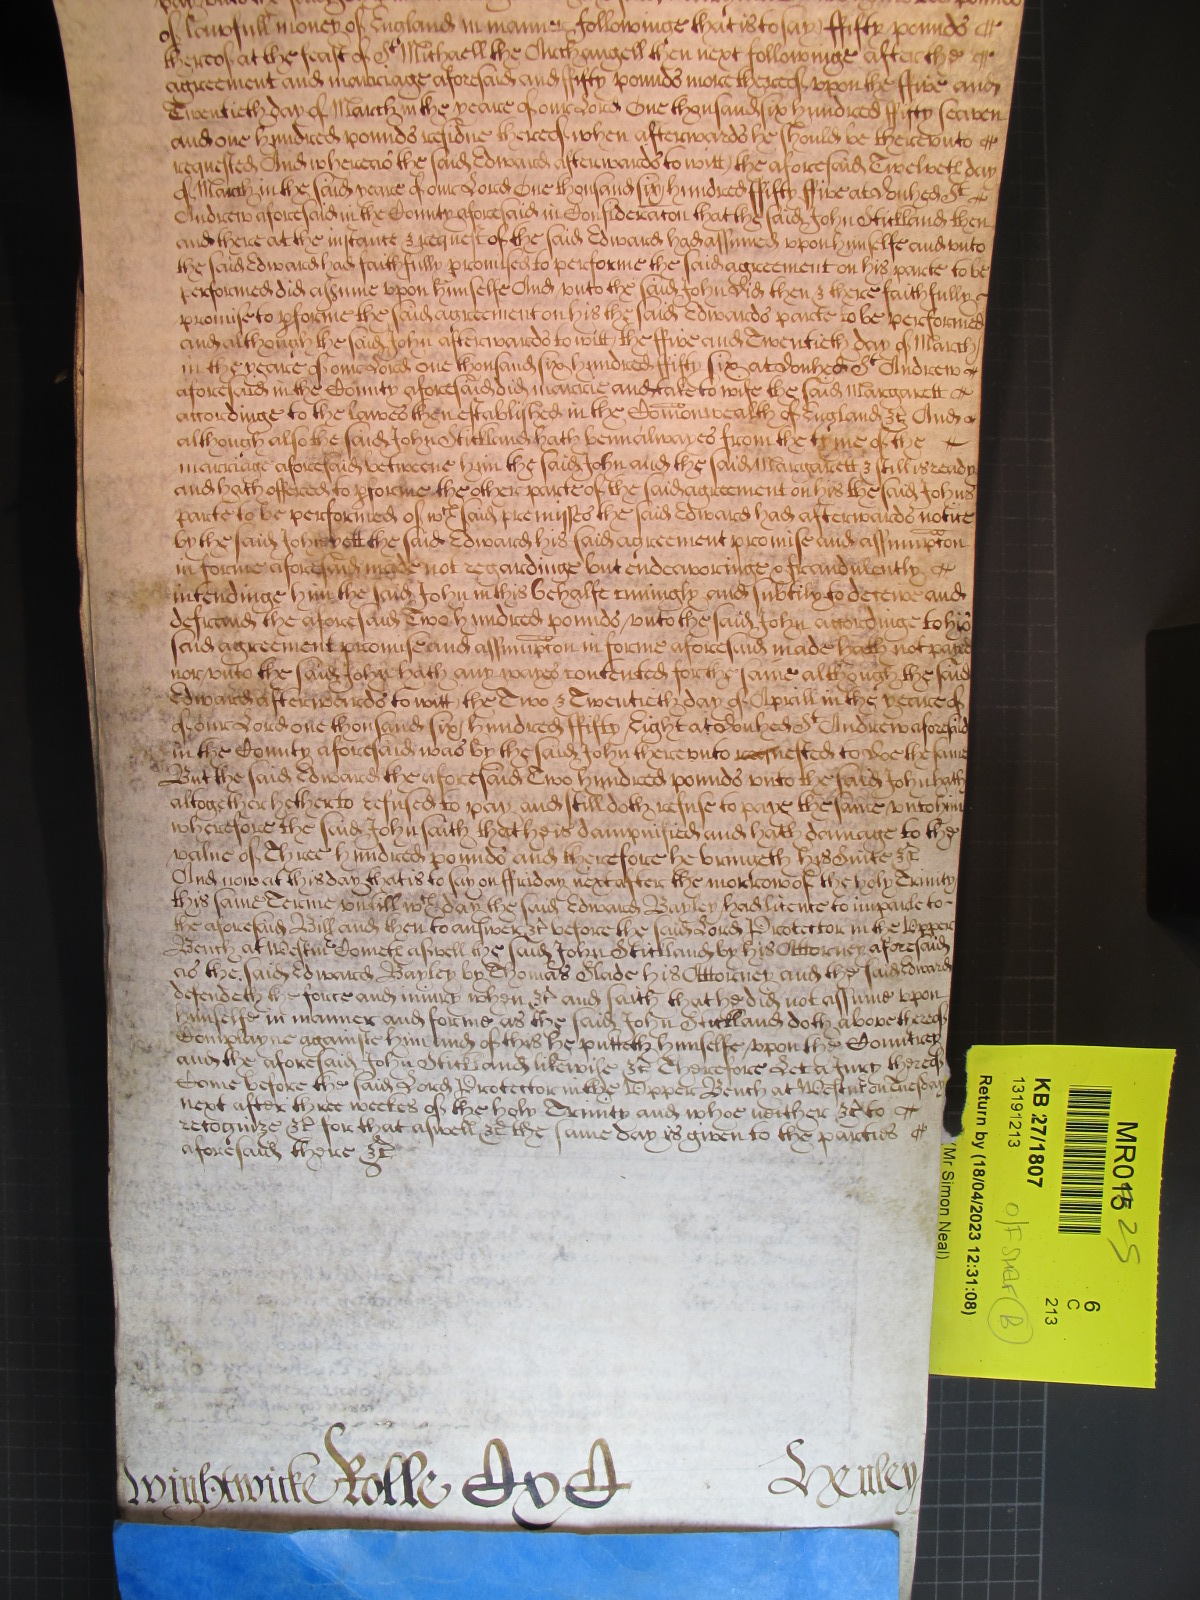 of lawfull money of England in manner followinge that is to say ffifty pounds
thereof at the feast of St Michaell the Archangell then next followinge after the
agreement and marriage aforesaid and ffifty pounds more thereof upon the ffive and
Twentieth day of March in the yeare of our Lord One thousand six hundred ffifty seaven
and one hundred pounds residue thereof when afterwards he should be thereunto
requested And whereas the said Edward afterwards to witt the aforesaid Twelveth day
of March in the said yeare of our Lord One thousand six hundred ffifty ffive at Donhed St
Andrew aforesaid in the County aforesaid in Consideracon that the said John Stickland then
and there at the instance & request of the said Edward had assumed upon himselfe and unto
the said Edward had faithfully promised to performe the said agreement on his parte to be
performed did assume upon himselfe And unto the said John did then & there faithfully
promise to pforme the said agreement on his the said Edwards parte to be performed
and although the said John afterwards to witt the ffive and Twentieth day of March
in the yeare of our Lord one thousand six hundred ffifty six at Donhed St Andrew
aforesaid in the County aforesaid did marrie and take to wife the said Margarett
accordinge to the lawes then established in the Comonwealth of England &c And
although also the said John Stickland hath benn alwayes from the tyme of the
marriage aforesaid betweene him the said John and the said Margarett & still is ready
and hath offered to pforme the other parte of the said agreement on his the said Johns
parte to be performed of wch said premisses the said Edward had afterwards notice
by the said John yett the said Edward his said agreement promise and assumpcon
in forme aforesaid made not regardinge but endeavoringe & fraudulently
intendinge him the said John in this behalfe cuningly and subtily to deceive and
defraud the aforesaid Two hundred pounds unto the said John accordinge to his
said agreement promise and assumpcon in forme aforesaid made hath not payed
nor unto the said John hath any wayes contented for the same although the said
Edward afterwards to witt the Two & Twentieth day of Aprill in the yeare of
of our Lord one thousand six hundred ffifty Eight at Donhed St Andrew aforesaid
in the County aforesaid was by the said John thereunto requested to doe the same
But the said Edward the aforesaid Two hundred pounds unto the said John hath
altogether hetherto refused to pay and still doth refuse to paye the same unto him
wherefore the said John saith that he is dampnified and hath damage to the
value of Three hundred pounds and therefore he bringeth his Suite &c
And now at this day that is to say on ffriday next after the morrow of the holy Trinity
this same Terme untill wch day the said Edward Bayley had licence to imparle to
the aforesaid Bill and then to answer &c before the said Lord Protector in the Upper
Bench at Westmr Cometh aswell the said John Stickland by his Attorney aforesaid
as the said Edward Bayley by Thomas Slade his Attorney and the said Edward
defendeth the force and injury when &c and saith that he did not assume upon
himselfe in manner and forme as the said John Stickland doth above thereof
Complayne against him And of this he putteth himselfe upon the Countrey
and the aforesaid John Stickland likewise &c Therefore Let a Jury thereof
Come before the said Lord Protector in the Upper Bench at Westmr on Tuesday
next after three weekes of the holy Trinity and whoe neither &c to
recognize &c for that aswell &c the same day is given to the parties
aforesaid there &c
Wightwicke Rolle
Henley
MR015 25
6
C
213
KB 27/1807
13191213
Return by (18/04/2023 12:31:08)
(Mr Simon Neal)